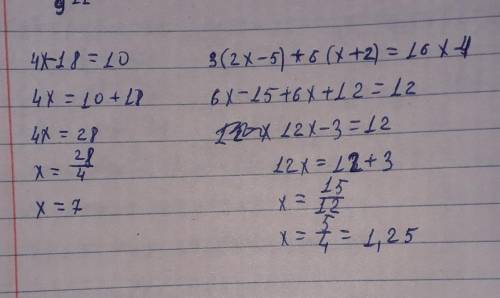 4x-18=10
4x=10+18
4x=28
x=28/4
x=7
3(2x-5)+6(x+2)=16x-4
6x-15+6x+12=12
12x-3=12
12x=12+3
x=15/12
x=5/4=1,25